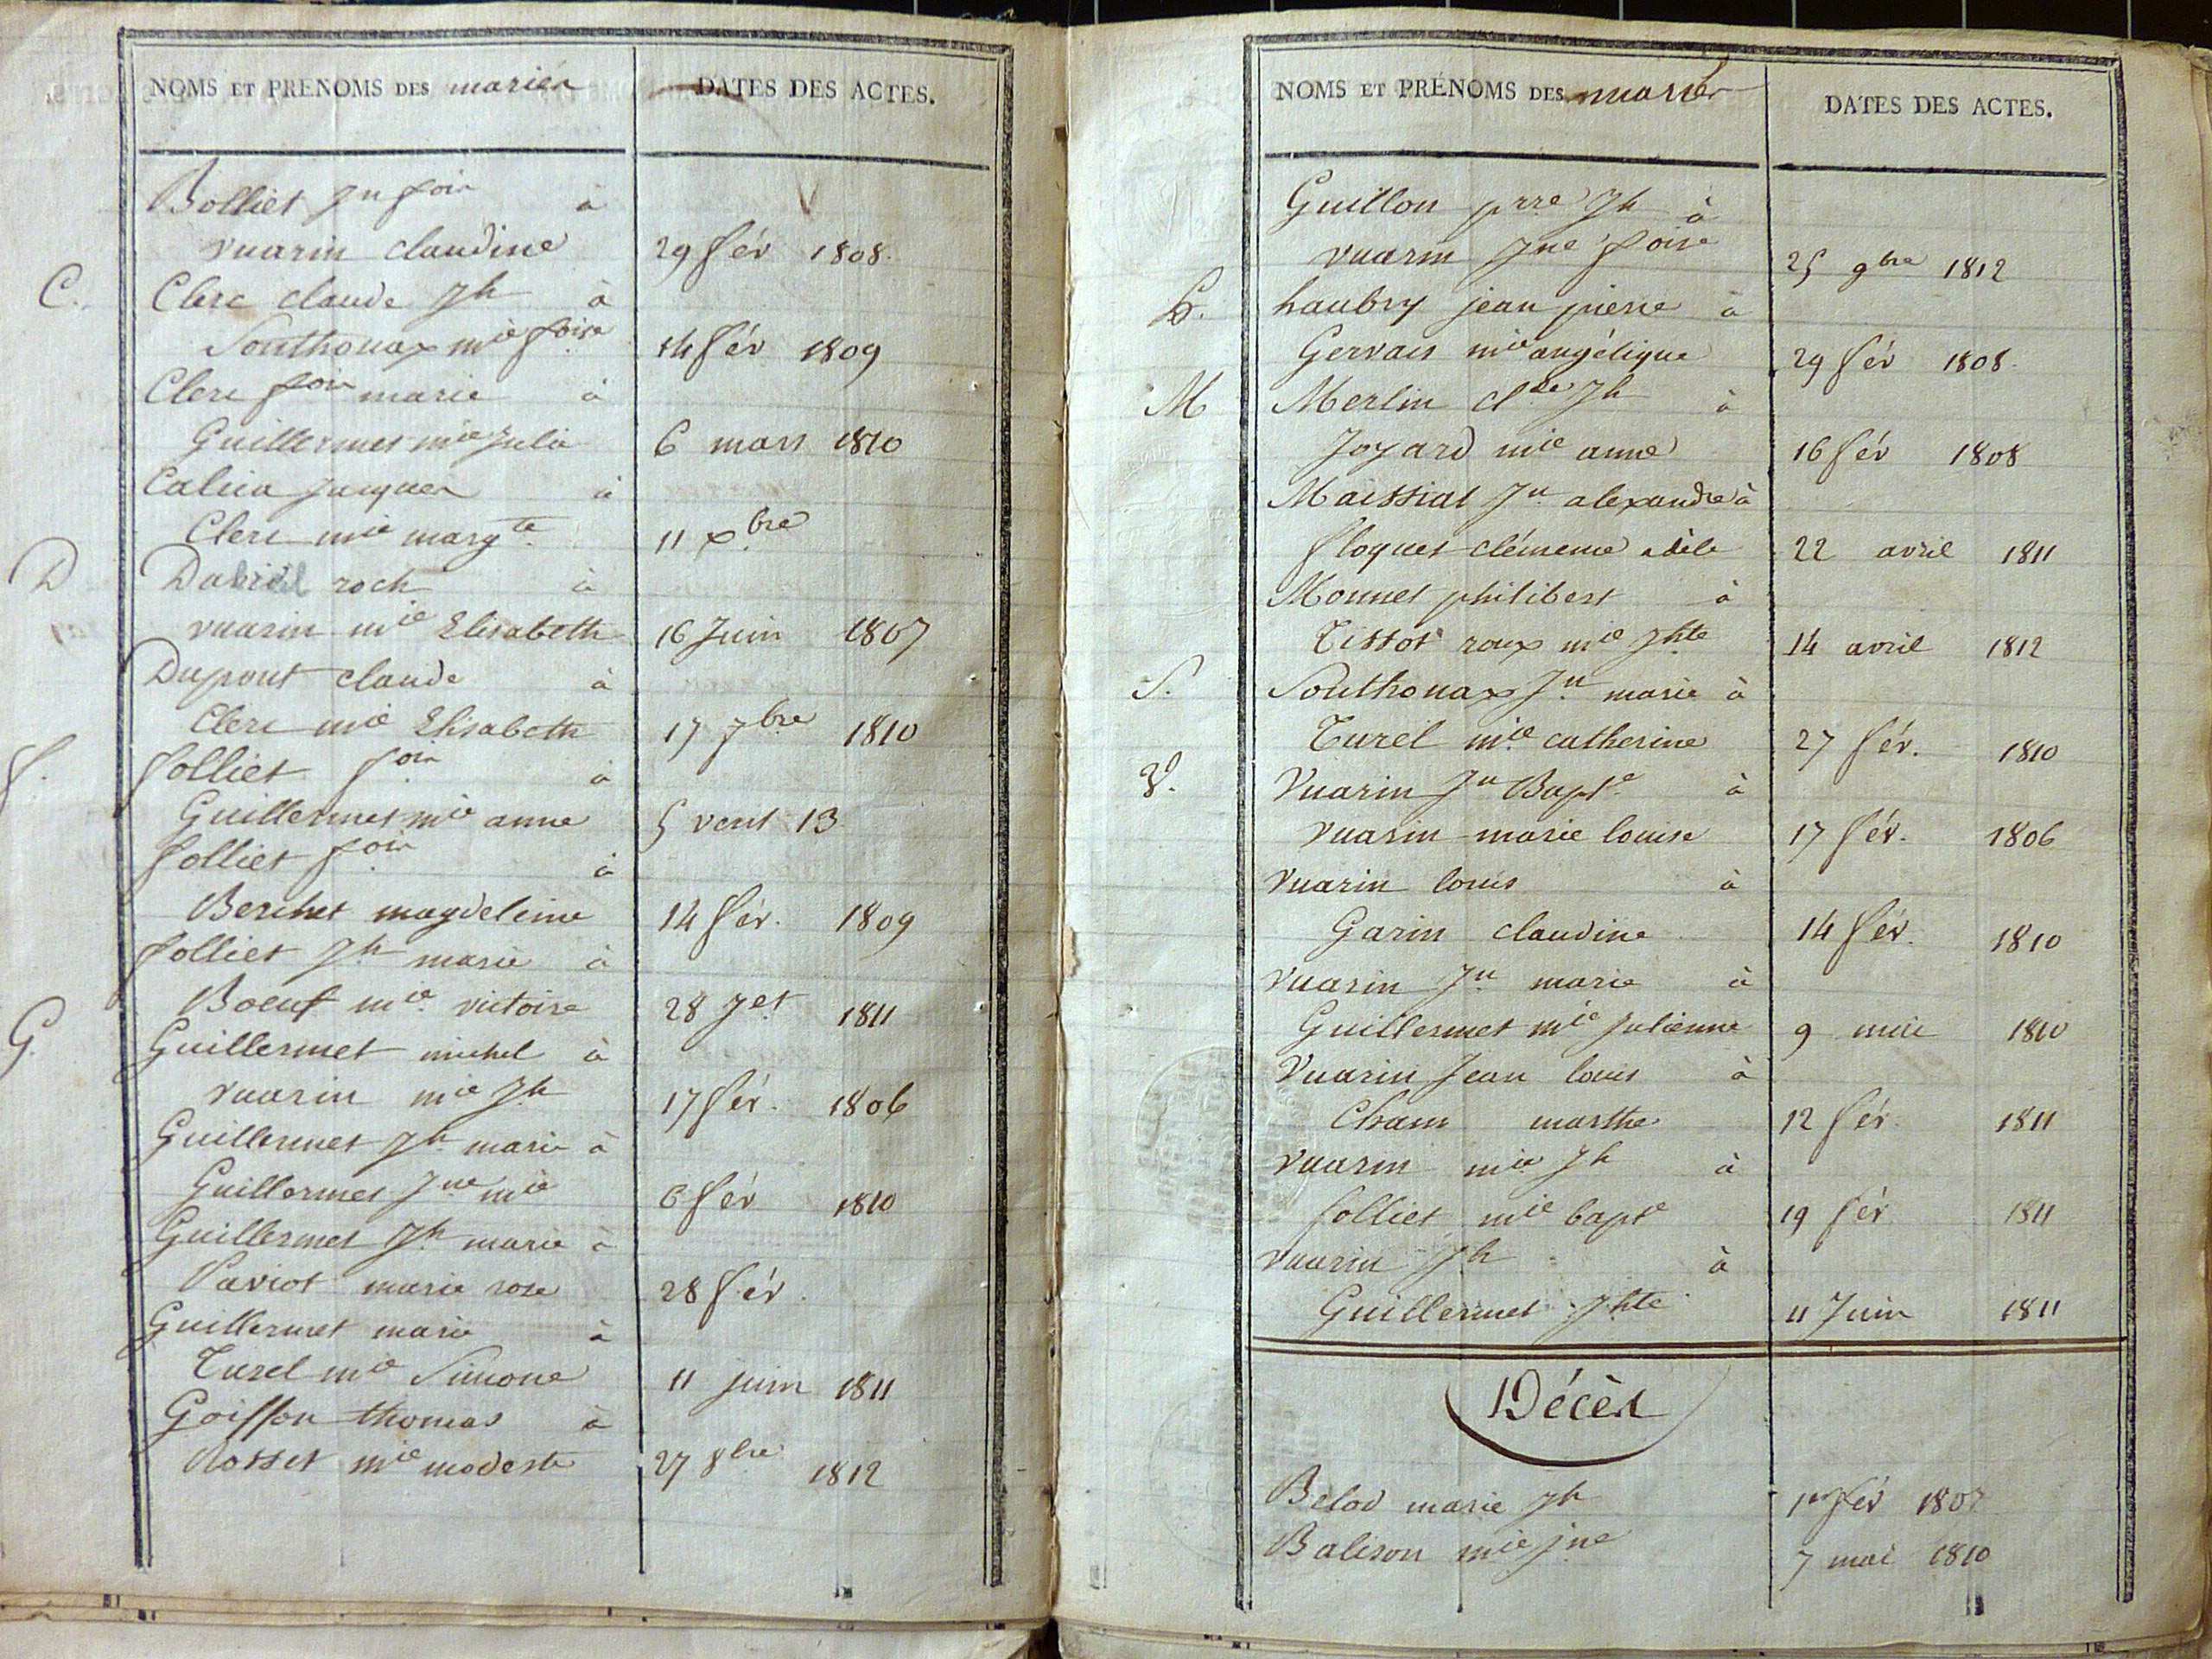 NOMS ET PRÉNOMS DES mariés DATES DES ACTES.
Bolliet Jn fois à
vuarin claudine 29 fév 1808.
C. Clerc claude Jh à
Southonax mie foise 14 fév 1809
Clerc fois marie à
Guillermet mie Julie 6 mars 1810
Jacques à
Clerc mie margte 11 xbre
D roch à
vuarin mie Elisabeth 16 Juin 1807
Dupont claude à
Clerc mie Elisabeth 17 7bre 1810
f. folliet fois à
Guillermet mie anne 5 vent 13
folliet fois à
Berchet magdeleine 14 fév. 1809
folliet Jh marie à
Boeuf mie victoire 28 Jet 1811
G. Guillermet michel à
vuarin mie Jh 17 fév. 1806
Guillermet Jh marie à
Guillermet Jne mie 6 fév 1810
Guillermet Jh marie à
Paviot marie rose 28 fév.
Guillermet marie à
Turel mie Simone 11 juin 1811
Goiffon thomas à
Rosset mie modeste 27 8bre 1812
NOMS ET PRÉNOMS DES mariés DATES DES ACTES.
Guillon prre Jh à
vuarin Jne foise 25 9bre 1812
h. haubry jean pierre à
Gervais mie angélique 29 fév 1808.
M Merlin clde Jh à
Joyard mie anne 16 fév 1808
Maissiat Jn alexandre à
floquet clémence adèle 22 avril 1811
Monnet philibert à
Tissot roux mie Jhte 14 avril 1812
S. Southonax Jn marie à
Turel mie catherine 27 fév. 1810
V. Vuarin Jn Bapte à
vuarin marie louise 17 fév. 1806
Vuarin louis à
Garin claudine 14 fév. 1810
vuarin Jn marie à
Guillermet mie Julienne 9 mai 1810
Vuarin Jean louis à
Cham marthe 12 fév. 1811
vuarin mie Jh à
folliet mie bapte 19 fév 1811
vuarin Jh à
Guillermet Jhte 11 Juin 1811
Décès
Belod marie Jh 1er fév 1807
Balison mie jne 7 mai 1810